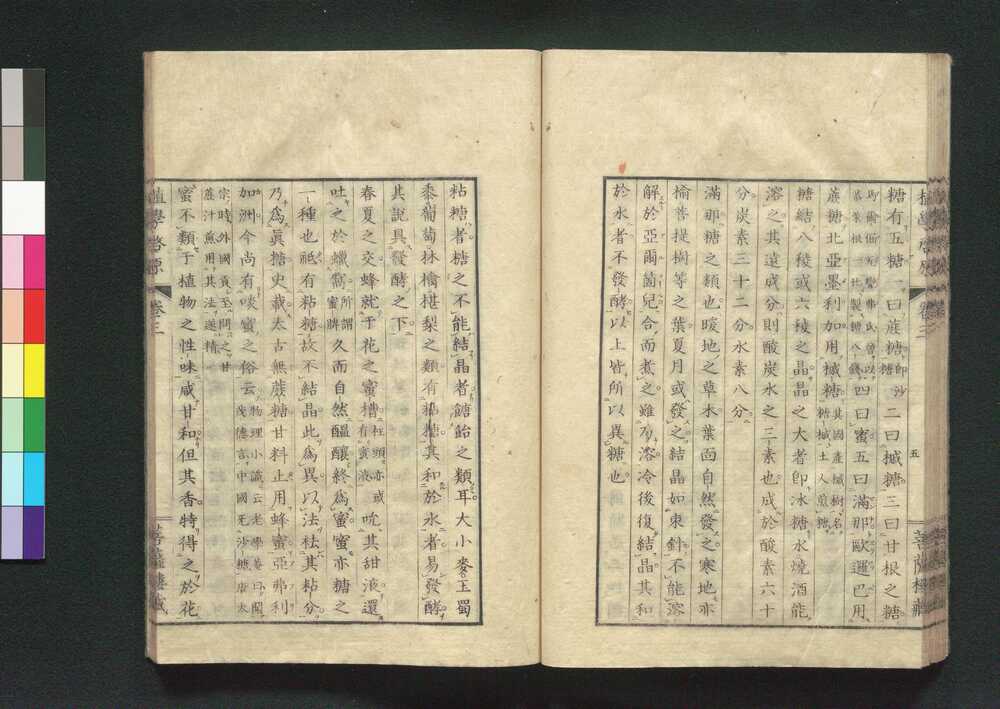 糖有五糖一曰蔗糖即沙糖二曰槭糖三曰甘根之糖
蔗糖北亞墨利加用槭糖其國產槭樹名糖槭土人煎糖四曰蜜五曰滿那歐邏巴用
糖結八稜或六稜之晶晶之大者即冰糖水燒酒能
溶之其遠成分則酸炭水之三素也成於酸素六十
分炭素三十二分水素八分
滿那糖之類也暖地之草木葉面自然發之寒地亦
榆菩提樹等之葉夏月或發之結晶如束針不能溶
解於亞爾箇兒合而煮之雖乃溶冷後復結晶其和
於水者不發酵以上皆所以異糖也
五
粘糖者糖之不能結晶者餹飴之類耳大小麥玉蜀
黍葡萄林檎椹梨之類有粘糖其和於水者易發酵
其說具發酵之下
春夏之交蜂就于花之蜜槽柱頭亦或有蜜液吮其甜液還
吐之於蠟窩所謂蜜脾久而自然醞釀終為蜜蜜亦糖之
一種也祗有粘糖故不結晶此為異以法祛其粘分
乃為真糖史載太古無蔗糖甘料止用蜂蜜亞弗利
加洲今尚有啖蜜之俗云物理小識云老學菴曰聞茂德言中國无沙糖唐太
宗時外國貢至問之甘蔗汁煎用其法遂精
蜜不類于植物之性味咸甘和但其香特得之於花
植學啓原
卷三
菩薩樓藏